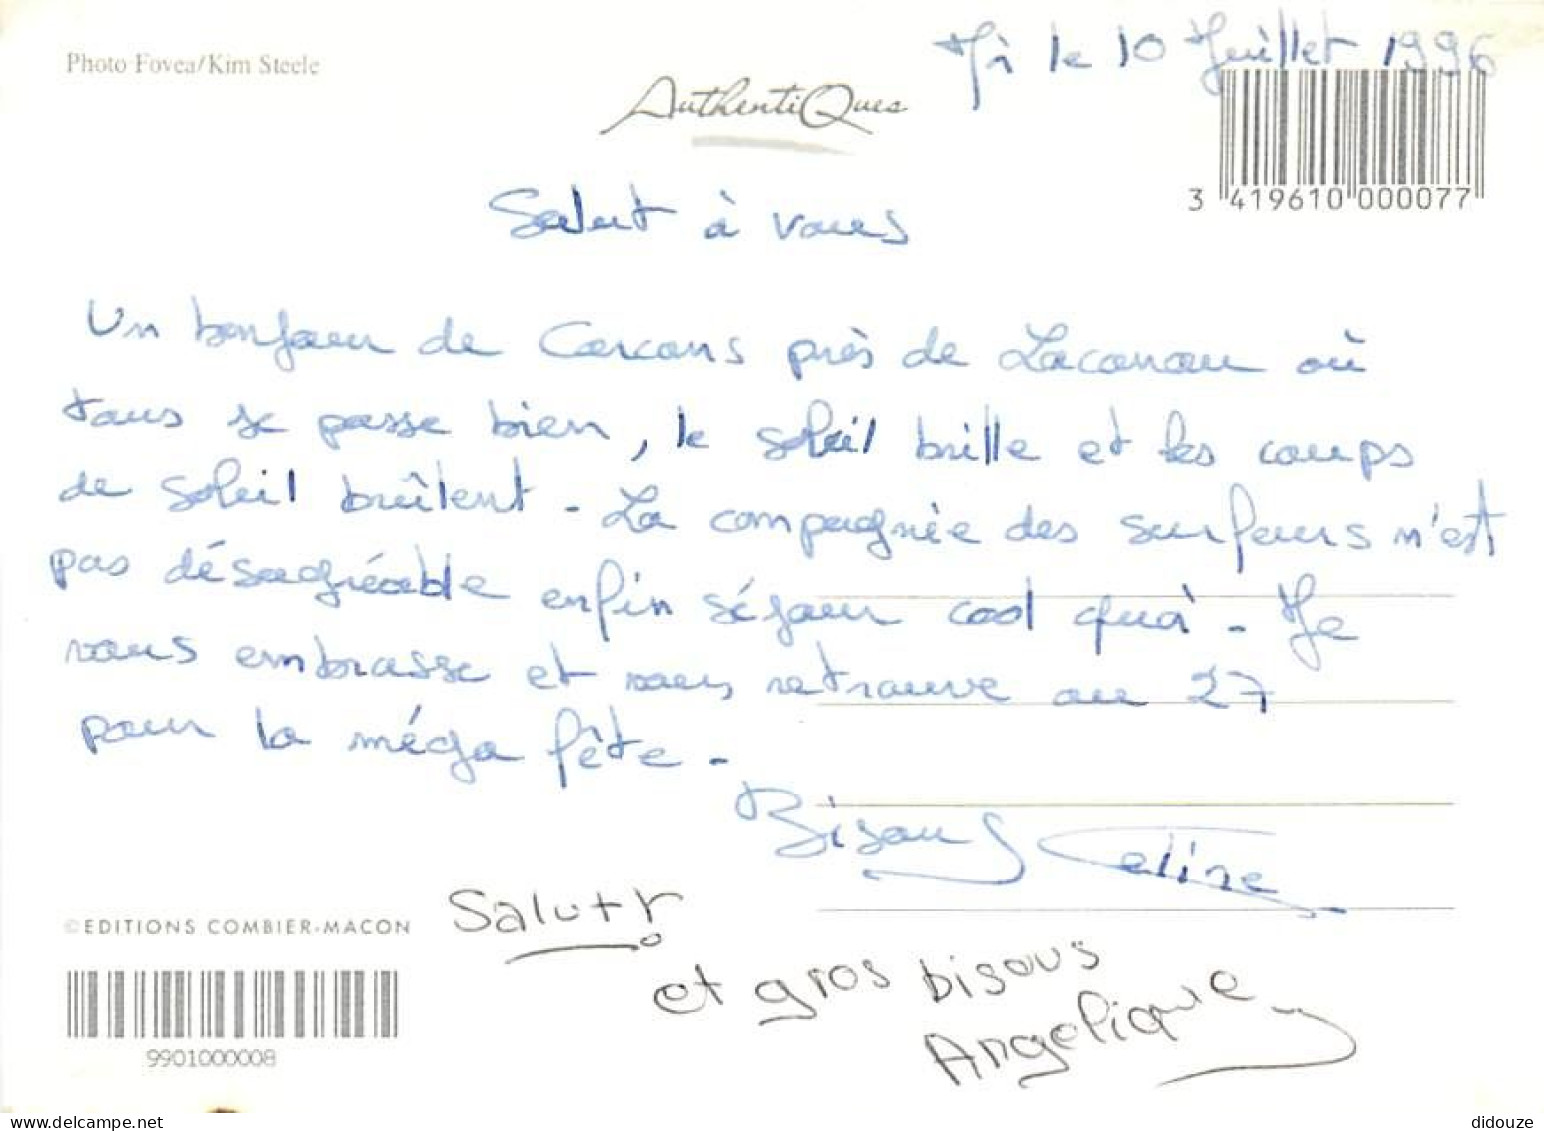 Photo Fovea/Kim Steele
le 10 Juillet 1996
AuthentiQues
3 419610 000077
Salut à vous
Un bonjour de Carcans près de Lacanau où
tous se passe bien, le soleil brille et les coups
de soleil brûlent - La compagnie des surfeurs n'est
pas désagréable enfin séjour cool quoi - Je
vous embrasse et vous retrouve au 27
pour la méga fête -
Bisous Celine
©EDITIONS COMBIER-MACON
Salut
et gros bisous
Angelique
9901000008
didouze